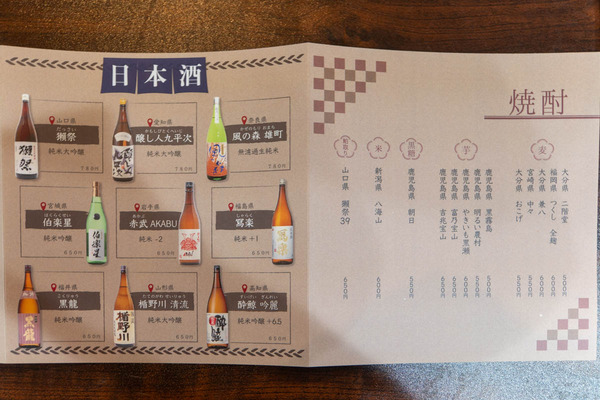 日本酒
山口県
だっさい
獺祭
純米大吟醸
780円
愛知県
かもしびとくへいじ
醸し人九平次
純米大吟醸
780円
奈良県
かぜのもり おまち
風の森 雄町
無濾過生純米
780円
宮城県
はくらくせい
伯楽星
純米吟醸
650円
岩手県
あかぶ
赤武 AKABU
純米 -2
650円
福島県
寫楽
純米 +1
650円
福井県
こくりゅう
黒龍
純米吟醸
650円
山形県
たてのかわ せいりゅう
楯野川 清流
純米大吟醸
650円
高知県
すいげい ぎんれい
酔鯨 吟麗
純米吟醸 +6.5
650円
焼酎
麦
大分県 二階堂 500円
福岡県 つくし 全麹
大分県 兼八
宮崎県 中々
大分県 おこげ 500円
芋
鹿児島県 黒霧島 500円
鹿児島県 明るい農村
鹿児島県 やきいも黒瀬 600円
鹿児島県 富乃宝山 650円
鹿児島県 吉兆宝山 650円
黒糖
鹿児島県 朝日 600円
米
新潟県 八海山 600円
山口県 獺祭39 650円